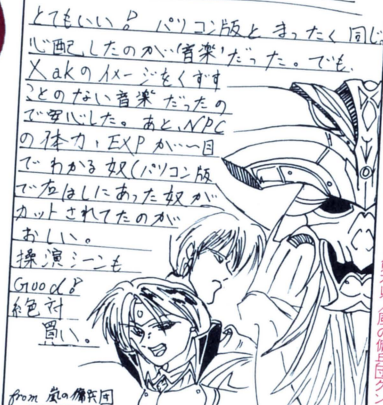 とてもいい! パソコン版とまったく同じ。
心配したのが、'音楽'だった。でも、
Xakのイメージをくずす
ことのない音楽だったの
で安心した。あと、NPC
の体力、EXPが一目
でわかる奴(パソコン版
で右はしにあった奴が
カットされてたのが
おしい。
操演シーンも
Good!
絶対
買い。
from 嵐の傭兵団